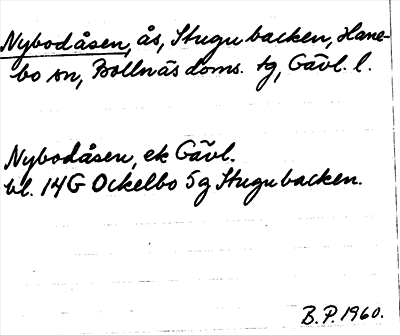 Nybodåsen, ås, Stugubacken, Hane-
bo sn, Bollnäs doms. tg, Gävl. l.
Nybodåsen, ek Gävl.
bl. 14G Ockelbo 5g Stugubacken.
B.P. 1960.